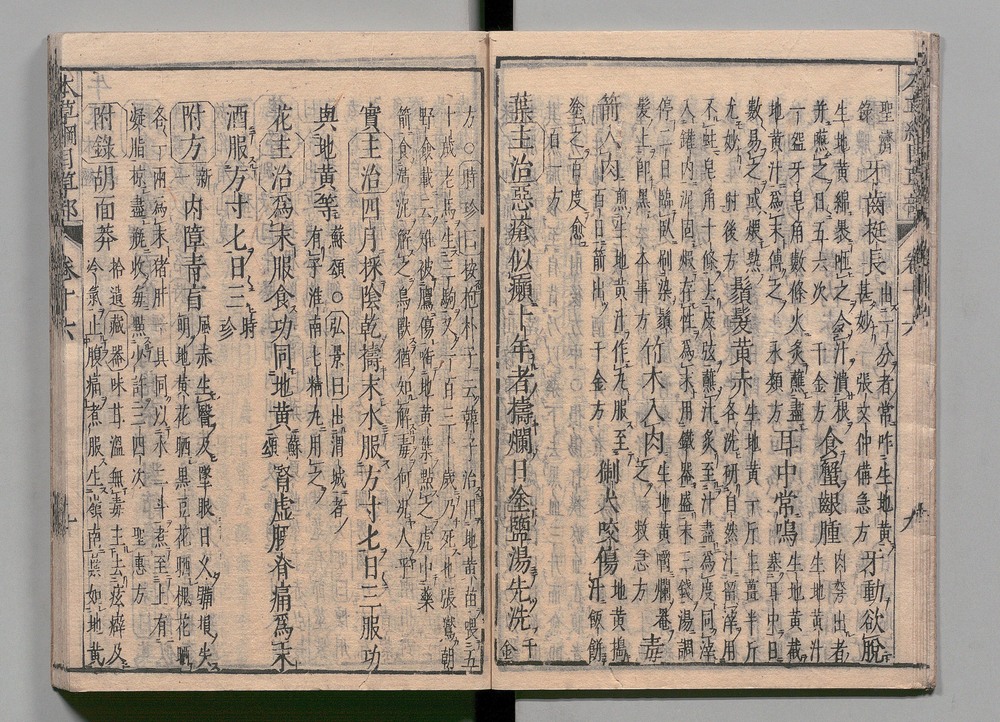 本草綱目草部 卷十六 九
聖濟錄 牙齒挺長 出一分者常咋生地黃甚妙 張文仲備急方 牙動欲脫
生地黃綿裹咂之令汁漬根
并嚥之日五六次 千金方 食蟹齦腫 肉弩出者生地黃汁
一盌牙皂角數條火炙蘸盡
地黃汁為末傅之 永類方 耳中常鳴 生地黃截塞耳中日
數易之或煨熟尤妙 肘後方 鬚髮黃赤 生地黃一斤生薑半斤各洗研自然汁留滓用
不蛀皂角十條去皮弦蘸汁炙至汁盡為度同滓
入罐內泥固煅存性為末用鐵器盛末二錢湯調
停二日臨臥刷染鬚髮上即黑 本事方 竹木入肉 生地黃嚼爛罨之 救急方 毒
箭入肉 煎生地黃汁作丸服至百日箭出 千金方 猘犬咬傷 地黃搗汁飯餅
塗之百度愈 百一方
葉主治惡瘡似癩十年者擣爛日塗鹽湯先洗 千金
方○時珍曰按抱朴子云韓子治用地黃苗喂五
十歲老馬生三駒又一百三十歲乃死也張鷟朝
野僉載云雉被鷹傷銜地黃葉點之虎中藥
箭食清泥解之鳥獸猶知解毒何況人乎
實主治四月採陰乾擣末水服方寸匕日三服功
與地黃等 蘇頌○弘景曰出渭城者有子淮南七精丸用之
花主治為末服食功同地黃 蘇頌 腎虛腰脊痛為末
酒服方寸匕日三 時珍
附方 新一 內障青盲 風赤生翳及墜眼日久瞳損失明地黃花晒黑豆花晒槐花晒
各一兩為末豬肝一具同以水二斗煮至上有
凝脂掠盡瓶收每點少許日三四次 聖惠方
附錄 胡面莽 拾遺藏器味甘溫無毒主去痃癖及冷氣止腹痛煮服生嶺南葉如地黃
本草綱目草部 卷十六 十